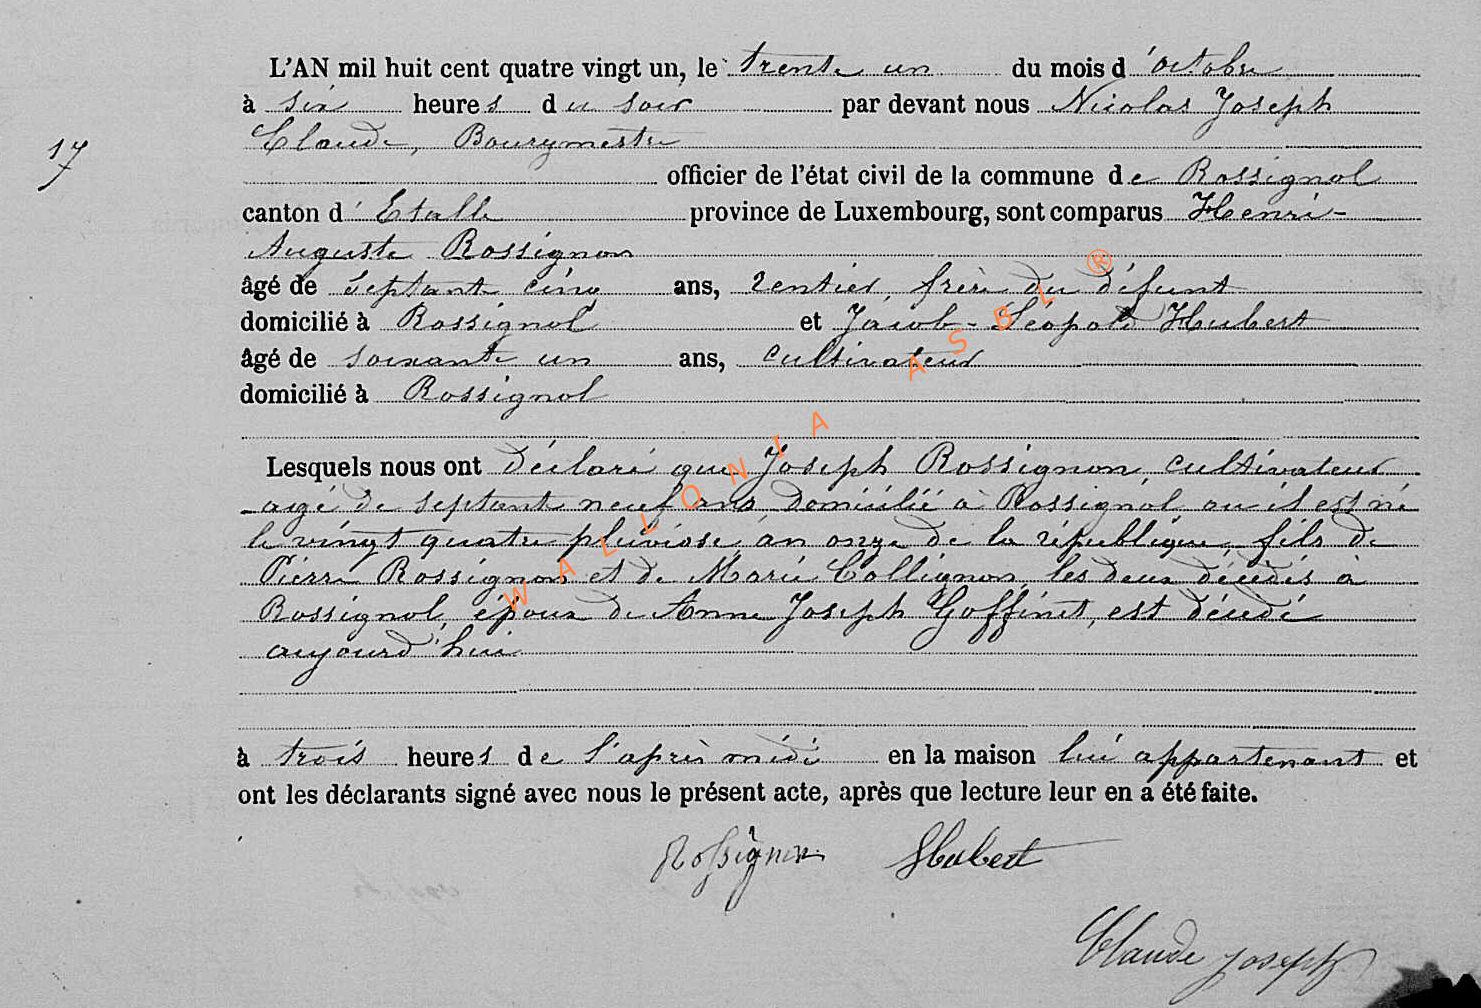 L'AN mil huit cent quatre vingt un, le trente un du mois d'octobre
à six heures du soir par devant nous Nicolas Joseph
17
Claude, Bourgmestre
officier de l'état civil de la commune de Rossignol
canton d'Etalle province de Luxembourg, sont comparus Henri-
Auguste Rossignon
âgé de septante cinq ans, rentier, frère du défunt
domicilié à Rossignol et Jacob-Léopold Hubert
âgé de soixante un ans, cultivateur
domicilié à Rossignol
Lesquels nous ont déclaré que Joseph Rossignon, cultivateur
agé de septante neuf ans domicilié à Rossignol ou il est né
le vingt quatre pluviose, an onze de la république, fils de
Pierre Rossignon et de Marie Collignon, les deux décédés à
Rossignol, époux de Anne Joseph Goffinet, est décédé
aujourd'hui
à trois heures de l'après midi en la maison lui appartenant et
ont les déclarants signé avec nous le présent acte, après que lecture leur en a été faite.
Rossignon Hubert
Claude Joseph
WALLONIA ASBL ®